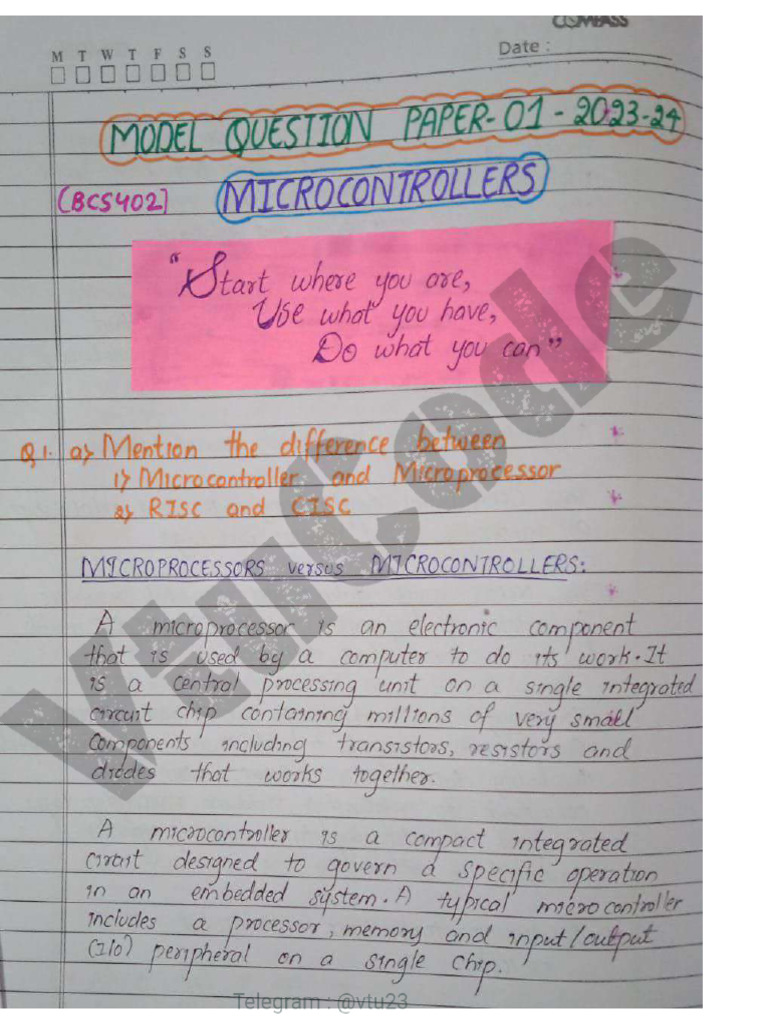 COMPASS
M T W T F S S
Date :
MODEL QUESTION PAPER-01-2023-24
(BCS402) MICROCONTROLLERS
"Start where you are,
Use what you have,
Do what you can"
Q1. a) Mention the difference between
1) Microcontroller and Microprocessor
2) RISC and CISC
MICROPROCESSORS versus MICROCONTROLLERS:
A microprocessor is an electronic component
that is used by a computer to do its work. It
is a central processing unit on a single integrated
circuit chip containing millions of very small
components including transistors, resistors and
diodes that works together.
A microcontroller is a compact integrated
circuit designed to govern a specific operation
in an embedded system. A typical microcontroller
includes a processor, memory and input/output
(I/O) peripheral on a single chip.
Vtucode
Telegram : @vtu23